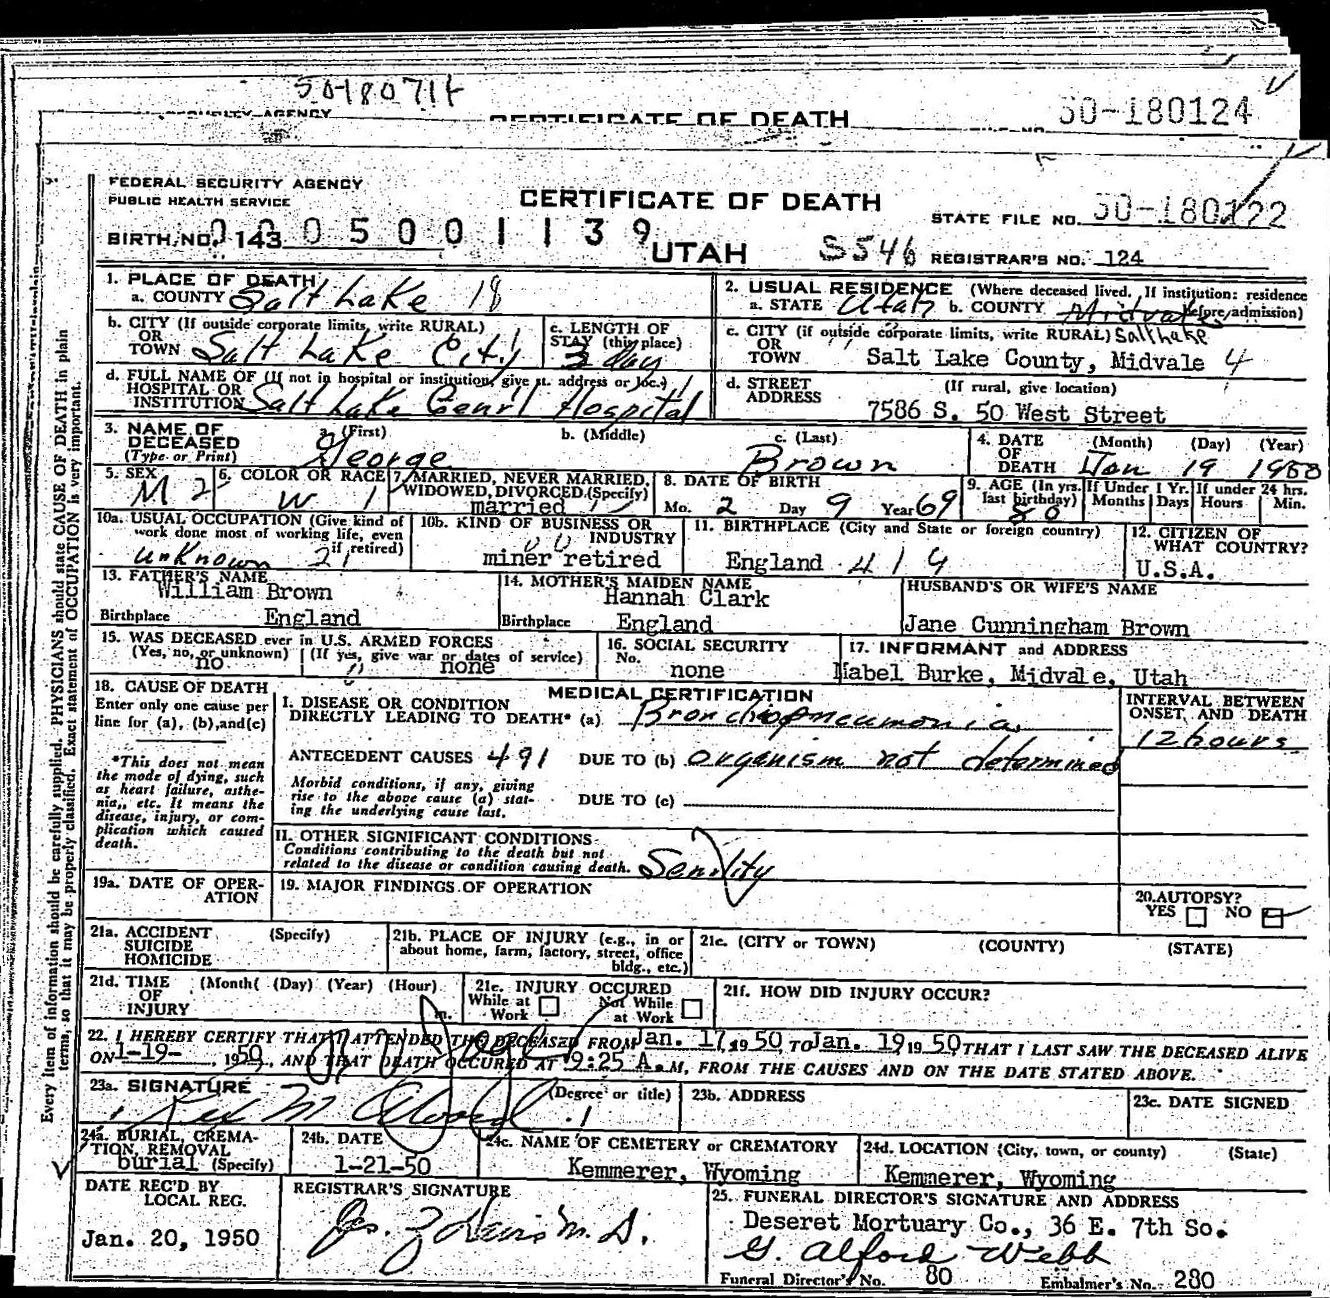 50-180714
CERTIFICATE OF DEATH
50-180124
FEDERAL SECURITY AGENCY
PUBLIC HEALTH SERVICE
CERTIFICATE OF DEATH
STATE FILE NO. 50-180122
BIRTH NO. 143 0005001139
UTAH
S546
REGISTRAR'S NO. 124
Every item of information should be carefully supplied. PHYSICIANS should state CAUSE OF DEATH in plain
terms, so that it may be properly classified. Exact statement of OCCUPATION is very important.
1. PLACE OF DEATH
a. COUNTY Salt Lake 18
2. USUAL RESIDENCE (Where deceased lived. If institution: residence
a. STATE Utah b. COUNTY Midvale before admission)
b. CITY (If outside corporate limits, write RURAL)
OR
TOWN Salt Lake City
c. LENGTH OF
STAY (this place)
3 day
c. CITY (if outside corporate limits, write RURAL) Salt Lake
OR
TOWN Salt Lake County, Midvale 4
d. FULL NAME OF (If not in hospital or institution, give st. address or loc.)
HOSPITAL OR
INSTITUTION Salt Lake Genrl Hospital
d. STREET (If rural, give location)
ADDRESS 7586 S. 50 West Street
3. NAME OF
DECEASED
(Type or Print)
a. (First) b. (Middle) c. (Last)
George Brown
4. DATE (Month) (Day) (Year)
OF
DEATH Jan 19 1950
5. SEX
M 2
6. COLOR OR RACE
W 1
7. MARRIED, NEVER MARRIED,
WIDOWED, DIVORCED (Specify)
married
8. DATE OF BIRTH
Mo. 2 Day 9 Year 69
9. AGE (In yrs. last birthday) 80
If Under 1 Yr. Months Days
If under 24 hrs. Hours Min.
10a. USUAL OCCUPATION (Give kind of
work done most of working life, even
if retired)
unknown 21
10b. KIND OF BUSINESS OR
INDUSTRY
miner retired
11. BIRTHPLACE (City and State or foreign country)
England 414
12. CITIZEN OF
WHAT COUNTRY?
U.S.A.
13. FATHER'S NAME
William Brown
Birthplace England
14. MOTHER'S MAIDEN NAME
Hannah Clark
Birthplace England
HUSBAND'S OR WIFE'S NAME
Jane Cunningham Brown
15. WAS DECEASED ever in U.S. ARMED FORCES
(Yes, no, or unknown) (If yes, give war or dates of service)
no none
16. SOCIAL SECURITY
No. none
17. INFORMANT and ADDRESS
Mabel Burke, Midvale, Utah
18. CAUSE OF DEATH
Enter only one cause per
line for (a), (b), and (c)
*This does not mean
the mode of dying, such
as heart failure, asthe-
nia, etc. It means the
disease, injury, or com-
plication which caused
death.
MEDICAL CERTIFICATION
I. DISEASE OR CONDITION
DIRECTLY LEADING TO DEATH* (a) Bronchopneumonia
ANTECEDENT CAUSES 491 DUE TO (b) organism not determined
Morbid conditions, if any, giving
rise to the above cause (a) stat-
ing the underlying cause last.
DUE TO (c)
INTERVAL BETWEEN
ONSET AND DEATH
12 hours
II. OTHER SIGNIFICANT CONDITIONS
Conditions contributing to the death but not
related to the disease or condition causing death. Senility
19a. DATE OF OPER-
ATION
19. MAJOR FINDINGS OF OPERATION
20. AUTOPSY?
YES NO
21a. ACCIDENT (Specify)
SUICIDE
HOMICIDE
21b. PLACE OF INJURY (e.g., in or
about home, farm, factory, street, office
bldg., etc.)
21c. (CITY or TOWN) (COUNTY) (STATE)
21d. TIME (Month( (Day) (Year) (Hour)
OF
INJURY m.
21e. INJURY OCCURED
While at Work
Not While at Work
21f. HOW DID INJURY OCCUR?
22. I HEREBY CERTIFY THAT I ATTENDED THE DECEASED FROM Jan. 17, 19 50, TO Jan. 19, 19 50, THAT I LAST SAW THE DECEASED ALIVE
ON 1-19-, 1950, AND THAT DEATH OCCURED AT 9:25 A.M, FROM THE CAUSES AND ON THE DATE STATED ABOVE.
23a. SIGNATURE (Degree or title)
23b. ADDRESS
23c. DATE SIGNED
24a. BURIAL, CREMA-
TION, REMOVAL
burial (Specify)
24b. DATE
1-21-50
24c. NAME OF CEMETERY or CREMATORY
Kemmerer, Wyoming
24d. LOCATION (City, town, or county) (State)
Kemmerer, Wyoming
DATE REC'D BY
LOCAL REG.
Jan. 20, 1950
REGISTRAR'S SIGNATURE
25. FUNERAL DIRECTOR'S SIGNATURE AND ADDRESS
Deseret Mortuary Co., 36 E. 7th So.
G. Alford Webb
Funeral Director's No. 80 Embalmer's No. 280